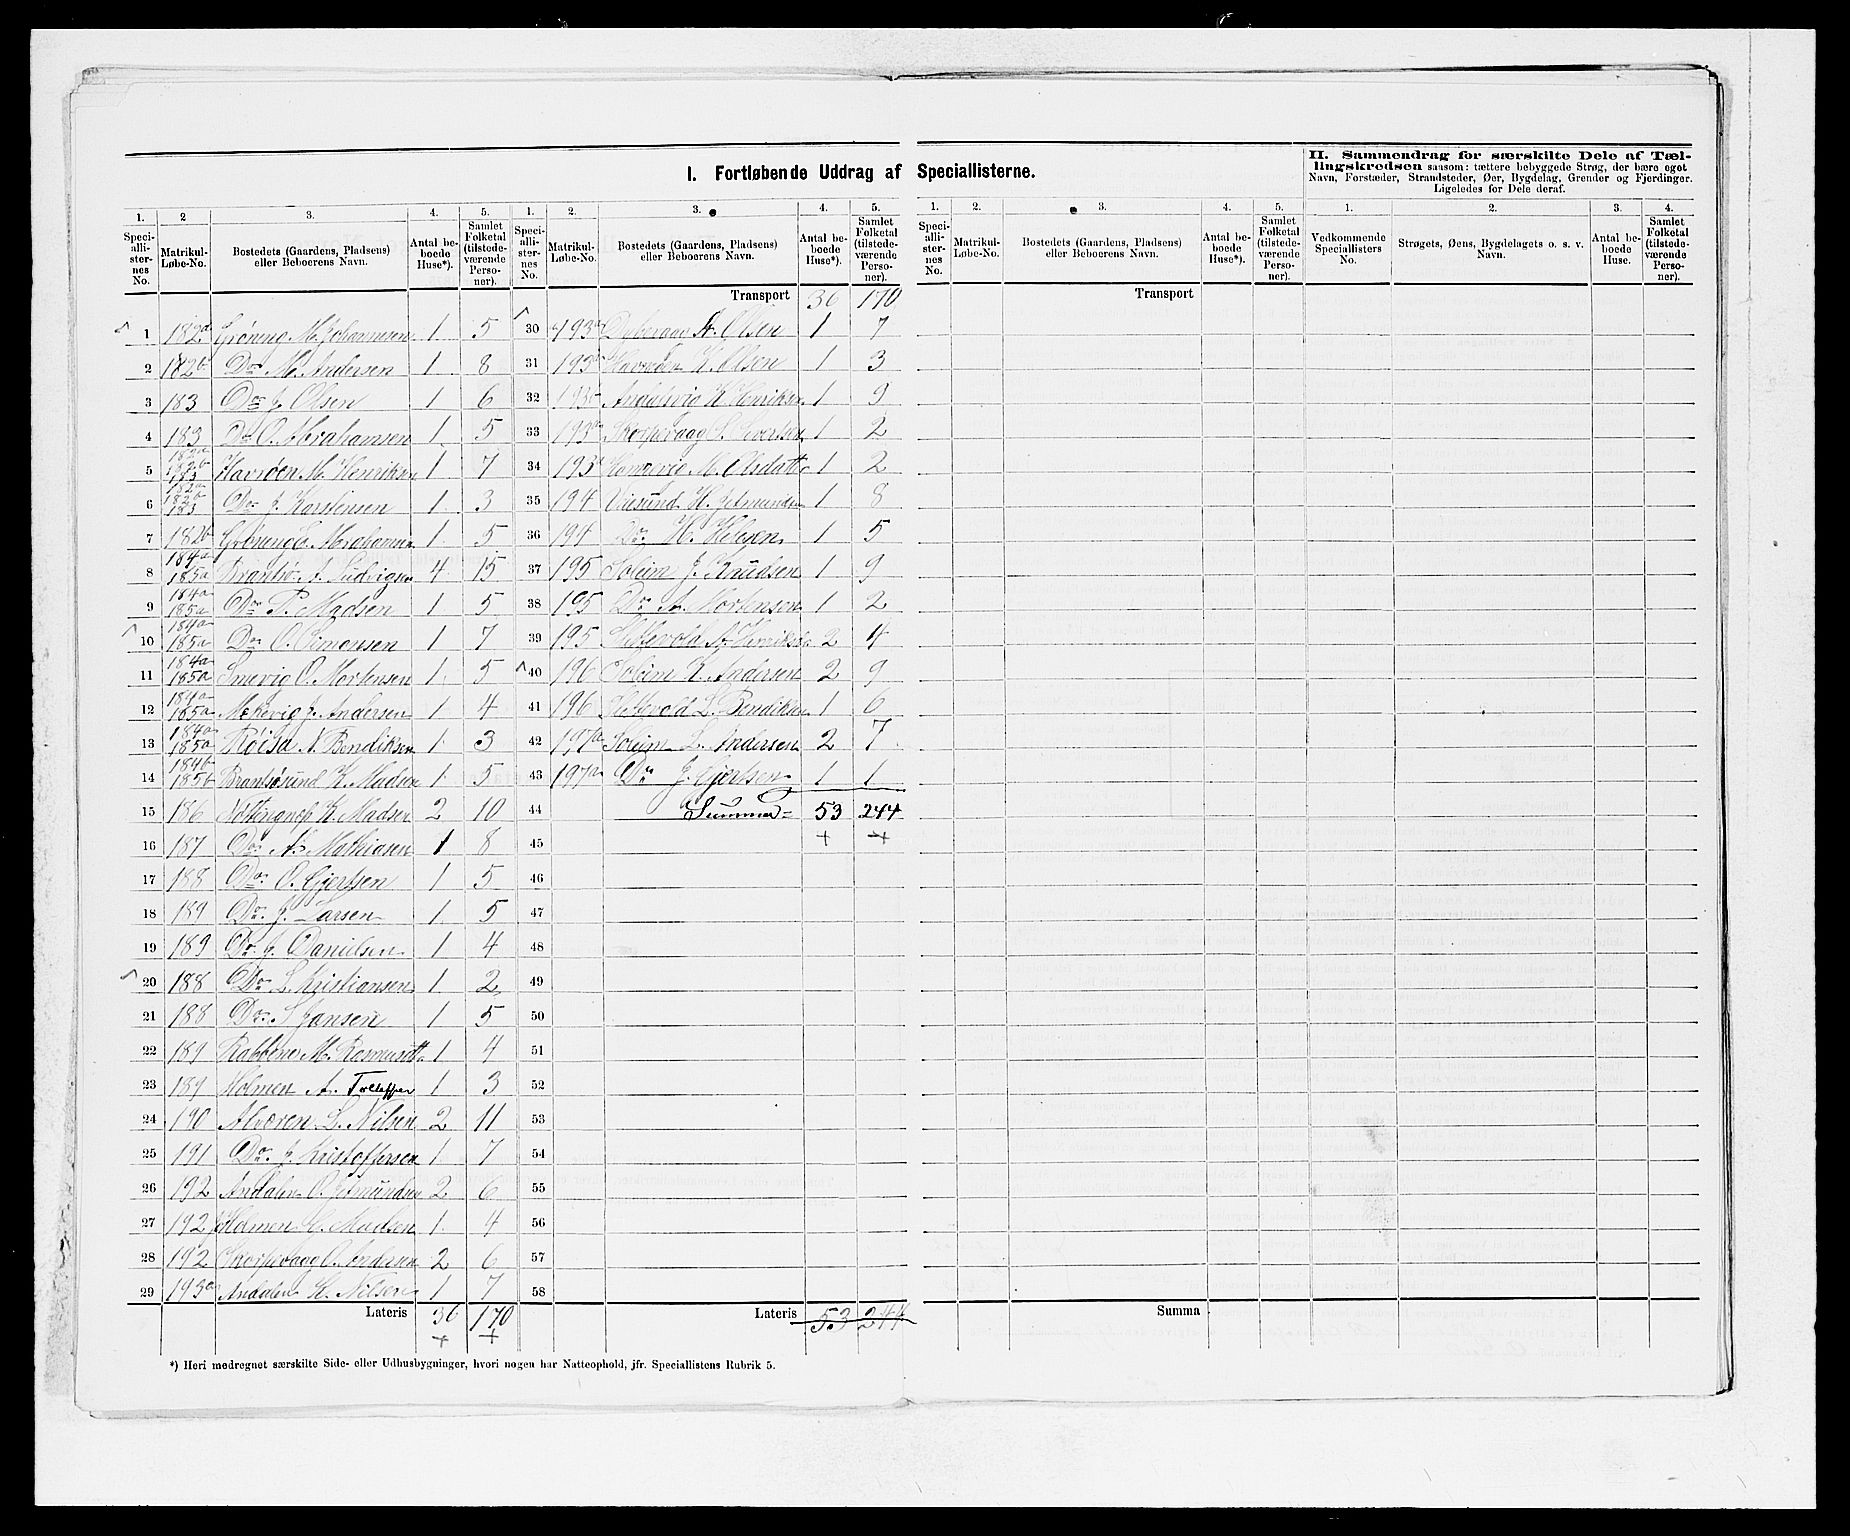 I. Fortløbende Uddrag af Speciallisterne.
II. Sammendrag for særskilte Dele af Tællingskredsen saasom: tættere bebyggede Strøg, der bære eget
Navn, Forstæder, Strandsteder, Øer, Bygdelag, Grender og Fjerdinger.
Ligeledes for Dele deraf.
1. 2 3. 4. 5. 1. 2. 3. 4. 5. 1. 2. 3. 4. 5. 1. 2. 3. 4.
Speciallisternes No. Matrikul-Løbe-No. Bostedets (Gaardens, Pladsens) eller Beboerens Navn. Antal beboede Huse*). Samlet Folketal (tilstedeværende Personer).
Speciallisternes No. Matrikul-Løbe-No. Bostedets (Gaardens, Pladsens) eller Beboerens Navn. Antal beboede Huse*). Samlet Folketal (tilstedeværende Personer).
Speciallisternes No. Matrikul-Løbe-No. Bostedets (Gaardens, Pladsens) eller Beboerens Navn. Antal beboede Huse*). Samlet Folketal (tilstedeværende Personer).
Vedkommende Speciallisters No. Strøgets, Øens, Bygdelagets o. s. v. Navn. Antal beboede Huse. Samlet Folketal (tilstedeværende Personer).
1 182a Grøneng M. Johannesen 1 5
2 182b Do M. Andersen 1 8
3 183 Do J. Olsen 1 6
4 183 Do O. Abrahamsen 1 5
5 182a 182b 183 Havrøen M. Henriksen 1 7
6 182a 182b 183 Do J. Karstensen 1 3
7 182b Grøneng A. Abrahamsen 1 5
8 184a 185a Brantsø A. Ludvigsen 4 15
9 184a 185a Do P. Madsen 1 5
10 184a 185a Do O. Simonsen 1 7
11 184a 185a Smevig O. Mortensen 1 5
12 184a 185a Mekevig J. Andersen 1 4
13 184a 185a Røisa N. Bendiksen 1 3
14 184b 185b Brantsøsund K. Madsen 1 5
15 186 K. Madsen 2 10
16 187 Do A. Mathiasen 1 8
17 188 Do O. Gjertsen 1 5
18 189 Do J. Larsen 1 5
19 189 Do J. Danielsen 1 4
20 188 Do L. Kristiansen 1 2
21 188 Do S. Jansen 1 5
22 189 Rabbene M. Rasmusdtr 1 4
23 189 Holmen A. Tollefsen 1 3
24 190 Alværen L. Nilsen 2 11
25 191 Do J. Kristoffersen 1 7
26 192 Andalen O. Jetmundsen 2 6
27 192 Holmen H. Madsen 1 4
28 192 Skorpevaag O. Andersen 2 6
29 193a Andalen H. Nilsen 1 7
Lateris 36 170
Transport 36 170
30 193a A. Olsen 1 7
31 193b Havnøen K. Olsen 1 3
32 193c Andalsvig K. Henriksen 1 9
33 193d Skorpevaag S. Sivertsen 1 2
34 193 M. Olsdatter 1 2
35 194 Viksund H. Jetmundsen 1 8
36 194 Do H. Helesen 1 5
37 195 Soleim J. Knudsen 1 9
38 195 Do A. Mortensen 1 2
39 195 A. Henriksen 2 4
40 196 Soleim K. Andersen 2 9
41 196 L. Bendiksen 1 6
42 197a Soleim L. Andersen 2 7
43 197a Do J. Gjertsen 1 1
44 Summa = 53 244
45
46
47
48
49
50
51
52
53
54
55
56
57
58
Lateris 53 244
Transport
Summa
*) Heri medregnet særskilte Side- eller Udhusbygninger, hvori nogen har Natteophold, jfr. Speciallistens Rubrik 5.